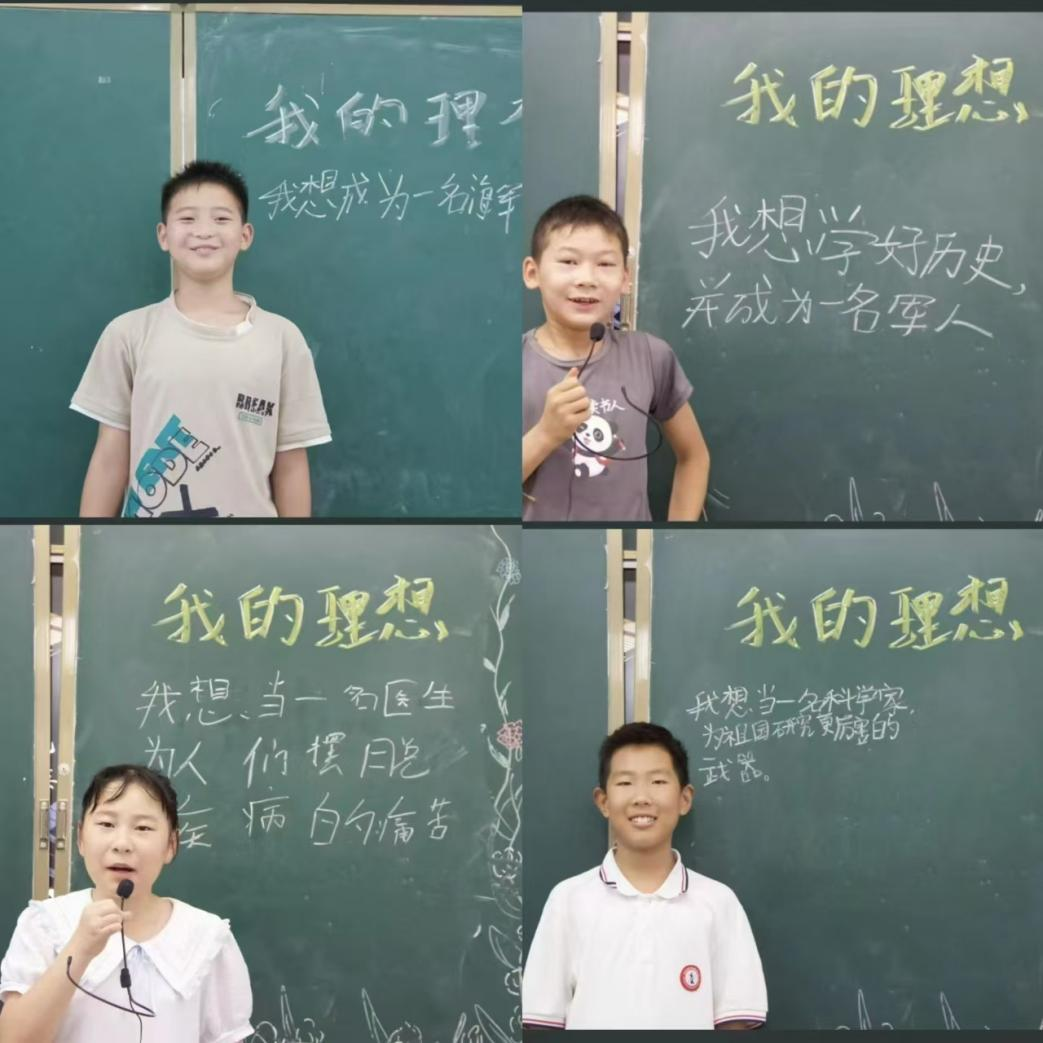 我的理
我想成为一名海军
BREAK
MODE
我的理想
我想学好历史,
并成为一名军人
读书人
我的理想
我想当一名医生
为人们摆脱
疾病的痛苦
我的理想
我想当一名科学家,
为祖国研究更厉害的
武器。